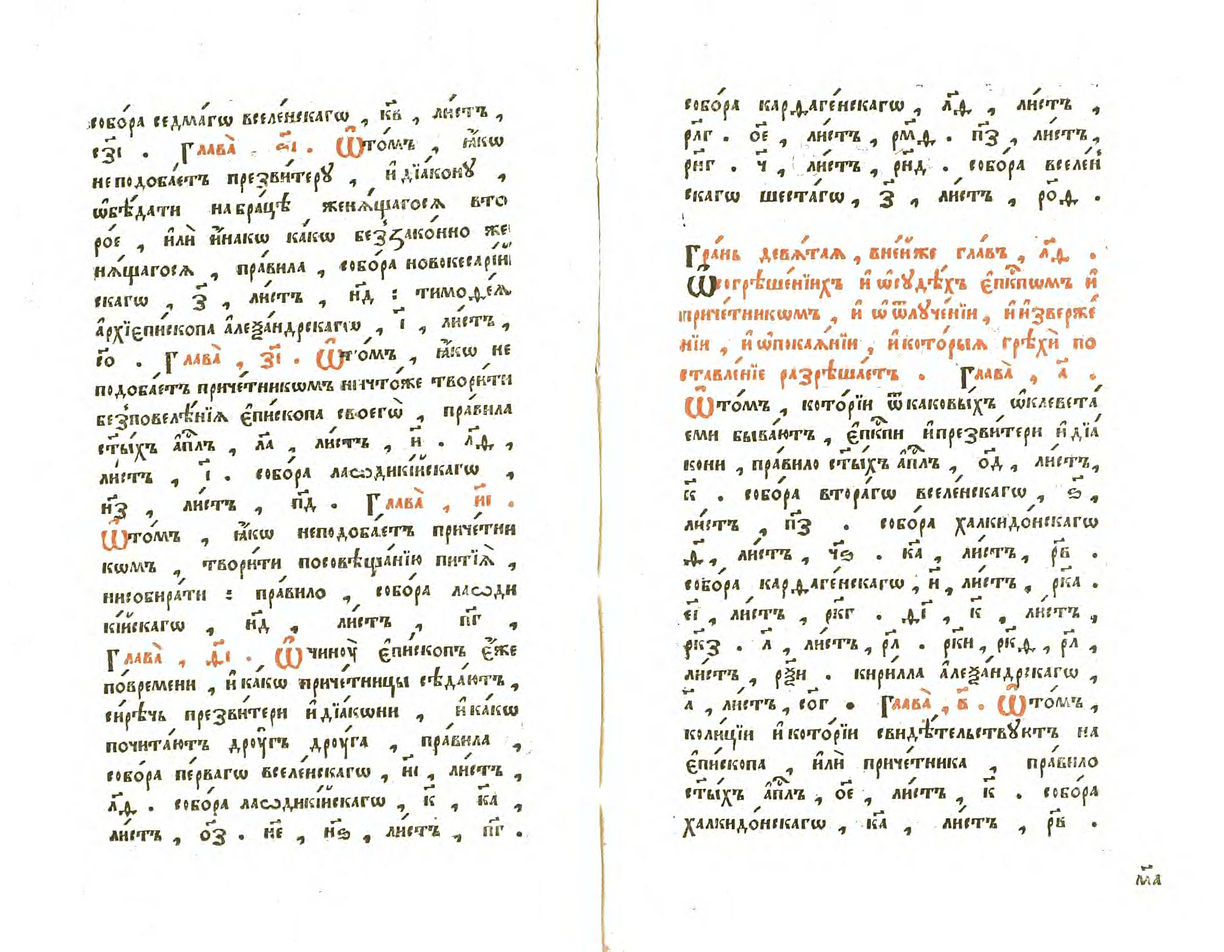 собо́ра седма́гѡ вселе́нскагѡ , к҃в , ли́стъ ,
с҃зі . Глава̀ . ѕ҃і . Ѿто́мъ , ꙗ҆́кѡ
неподоба́етъ презви́теру , и҆дїа́кону ,
ѡ҆бѣ́дати набра́цѣ женѧ́щагосѧ вто
ро́е , и҆лѝ и҆́накѡ ка́кѡ беззако́нно же
нѧ́щагосѧ , пра́вила , собо́ра новокесарі́й
скагѡ , з҃ , ли́стъ , н҃д : тимоѳе́ѧ
а҆рхїепи́скопа а҆леѯа́ндрскагѡ , і҃ , ли́стъ ,
с҃о . Глава̀ , з҃і . Ѿто́мъ , ꙗ҆́кѡ не
подоба́етъ приче́тникѡмъ ничто́же твори́ти
безповелѣ́нїѧ є҆пи́скопа своегѡ̀ , пра́вила
ст҃ы́хъ а҆пⷭ҇лъ , л҃а , ли́стъ , и҃ . л҃ѳ ,
ли́стъ , і҃ . собо́ра лаѡдикі́йскагѡ ,
н҃з , ли́стъ , п҃д . Глава̀ , и҃і .
Ѿто́мъ , ꙗ҆́кѡ неподоба́етъ приче́тни
кѡмъ , твори́ти посовѣща́нїю питїѧ̀ ,
нисобира́ти : пра́вило , собо́ра лаѡди
кі́йскагѡ , н҃д , ли́стъ , п҃г ,
Глава̀ , ѳ҃і . Ѡ҆чиноу̀ є҆пи́скопъ є҆́же
повремени , и҆ка́кѡ приче́тницы сѣда́ютъ ,
си́рѣчь презви́тери и҆дїа́кѡни , и҆ка́кѡ
почита́ютъ дроу́гъ дроу́га , пра́вила ,
собо́ра пе́рвагѡ вселе́нскагѡ , и҃і , ли́стъ ,
л҃ѳ . собо́ра лаѡдикі́йскагѡ , к҃ , к҃а ,
ли́стъ , о҃з . н҃е , н҃ѕ , ли́стъ , п҃г .
собо́ра карѳаге́нскагѡ , л҃ѳ , ли́стъ ,
р҃лг . о҃е , ли́стъ , р҃мѳ . п҃з , ли́стъ ,
р҃нг . ч҃ , ли́стъ , р҃нд . собо́ра вселе́н
скагѡ шеста́гѡ , з҃ , ли́стъ , р҃оѳ .
Гра́нь девѧ́таѧ , вне́йже гла́въ , л҃ѳ .
Ѡ҆согрѣше́нїихъ и҆ѡ҆сꙋдѣ́хъ є҆пⷭ҇кпѡмъ и҆
приче́тникѡмъ , и҆ ѡ҆ ѿлꙋче́нїи , и҆и҆зверже́
нїи , и҆ѡ҆покаѧ́нїи , и҆кото́рыѧ грѣхѝ по
ставле́нїе разрѣша́етъ . Глава̀ , а҃ .
Ѿто́мъ , кото́рїи ѿкаковы́хъ ѡ҆клевета́
еми быва́ютъ , є҆пⷭ҇кпи и҆презви́тери и҆дїа́
кони , пра́вило ст҃ы́хъ а҆пⷭ҇лъ , о҃д , ли́стъ ,
к҃ . собо́ра втора́гѡ вселе́нскагѡ , ѕ҃ ,
ли́стъ , п҃з . собо́ра халкидо́нскагѡ
ѳ҃ , ли́стъ , ч҃ѕ . к҃а , ли́стъ , р҃в .
собо́ра карѳаге́нскагѡ , и҃ , ли́стъ , р҃ка .
є҃і , ли́стъ , р҃кг . ѳ҃і , к҃ , ли́стъ ,
р҃кз . л҃ , ли́стъ , р҃л . р҃ки , р҃кѳ , р҃л ,
ли́стъ , р҃ѯи . кирилла а҆леѯа́ндрскагѡ ,
а҃ , ли́стъ , с҃ог . Глава̀ , в҃ . Ѿто́мъ ,
коли́цїи и҆кото́рїи свидѣ́тельствꙋютъ на
є҆пи́скопа , и҆лѝ приче́тника , пра́вило
ст҃ы́хъ а҆пⷭ҇лъ , о҃е , ли́стъ , к҃ . собо́ра
халкидо́нскагѡ , к҃а , ли́стъ , р҃в .
м҃а